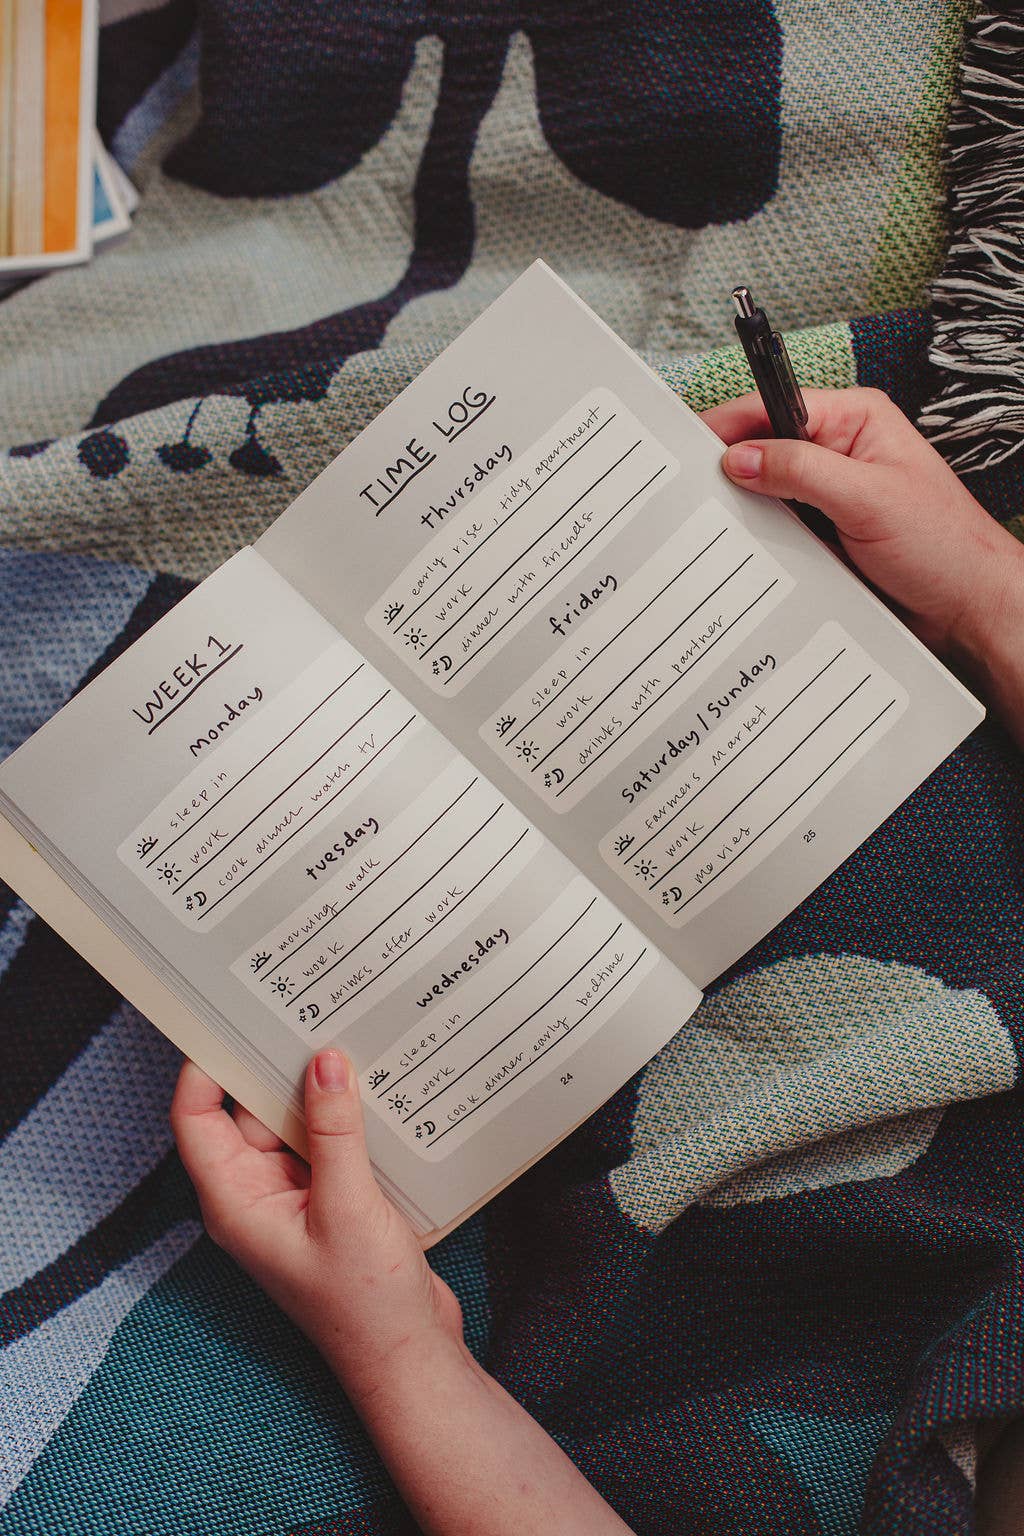 WEEK 1
monday
sleep in
work
cook dinner watch tv
tuesday
morning walk
work
drinks after work
wednesday
sleep in
work
cook dinner, early bedtime
24
TIME LOG
thursday
early rise, tidy apartment
work
dinner with friends
friday
sleep in
work
drinks with partner
saturday/sunday
farmers market
work
movies
25